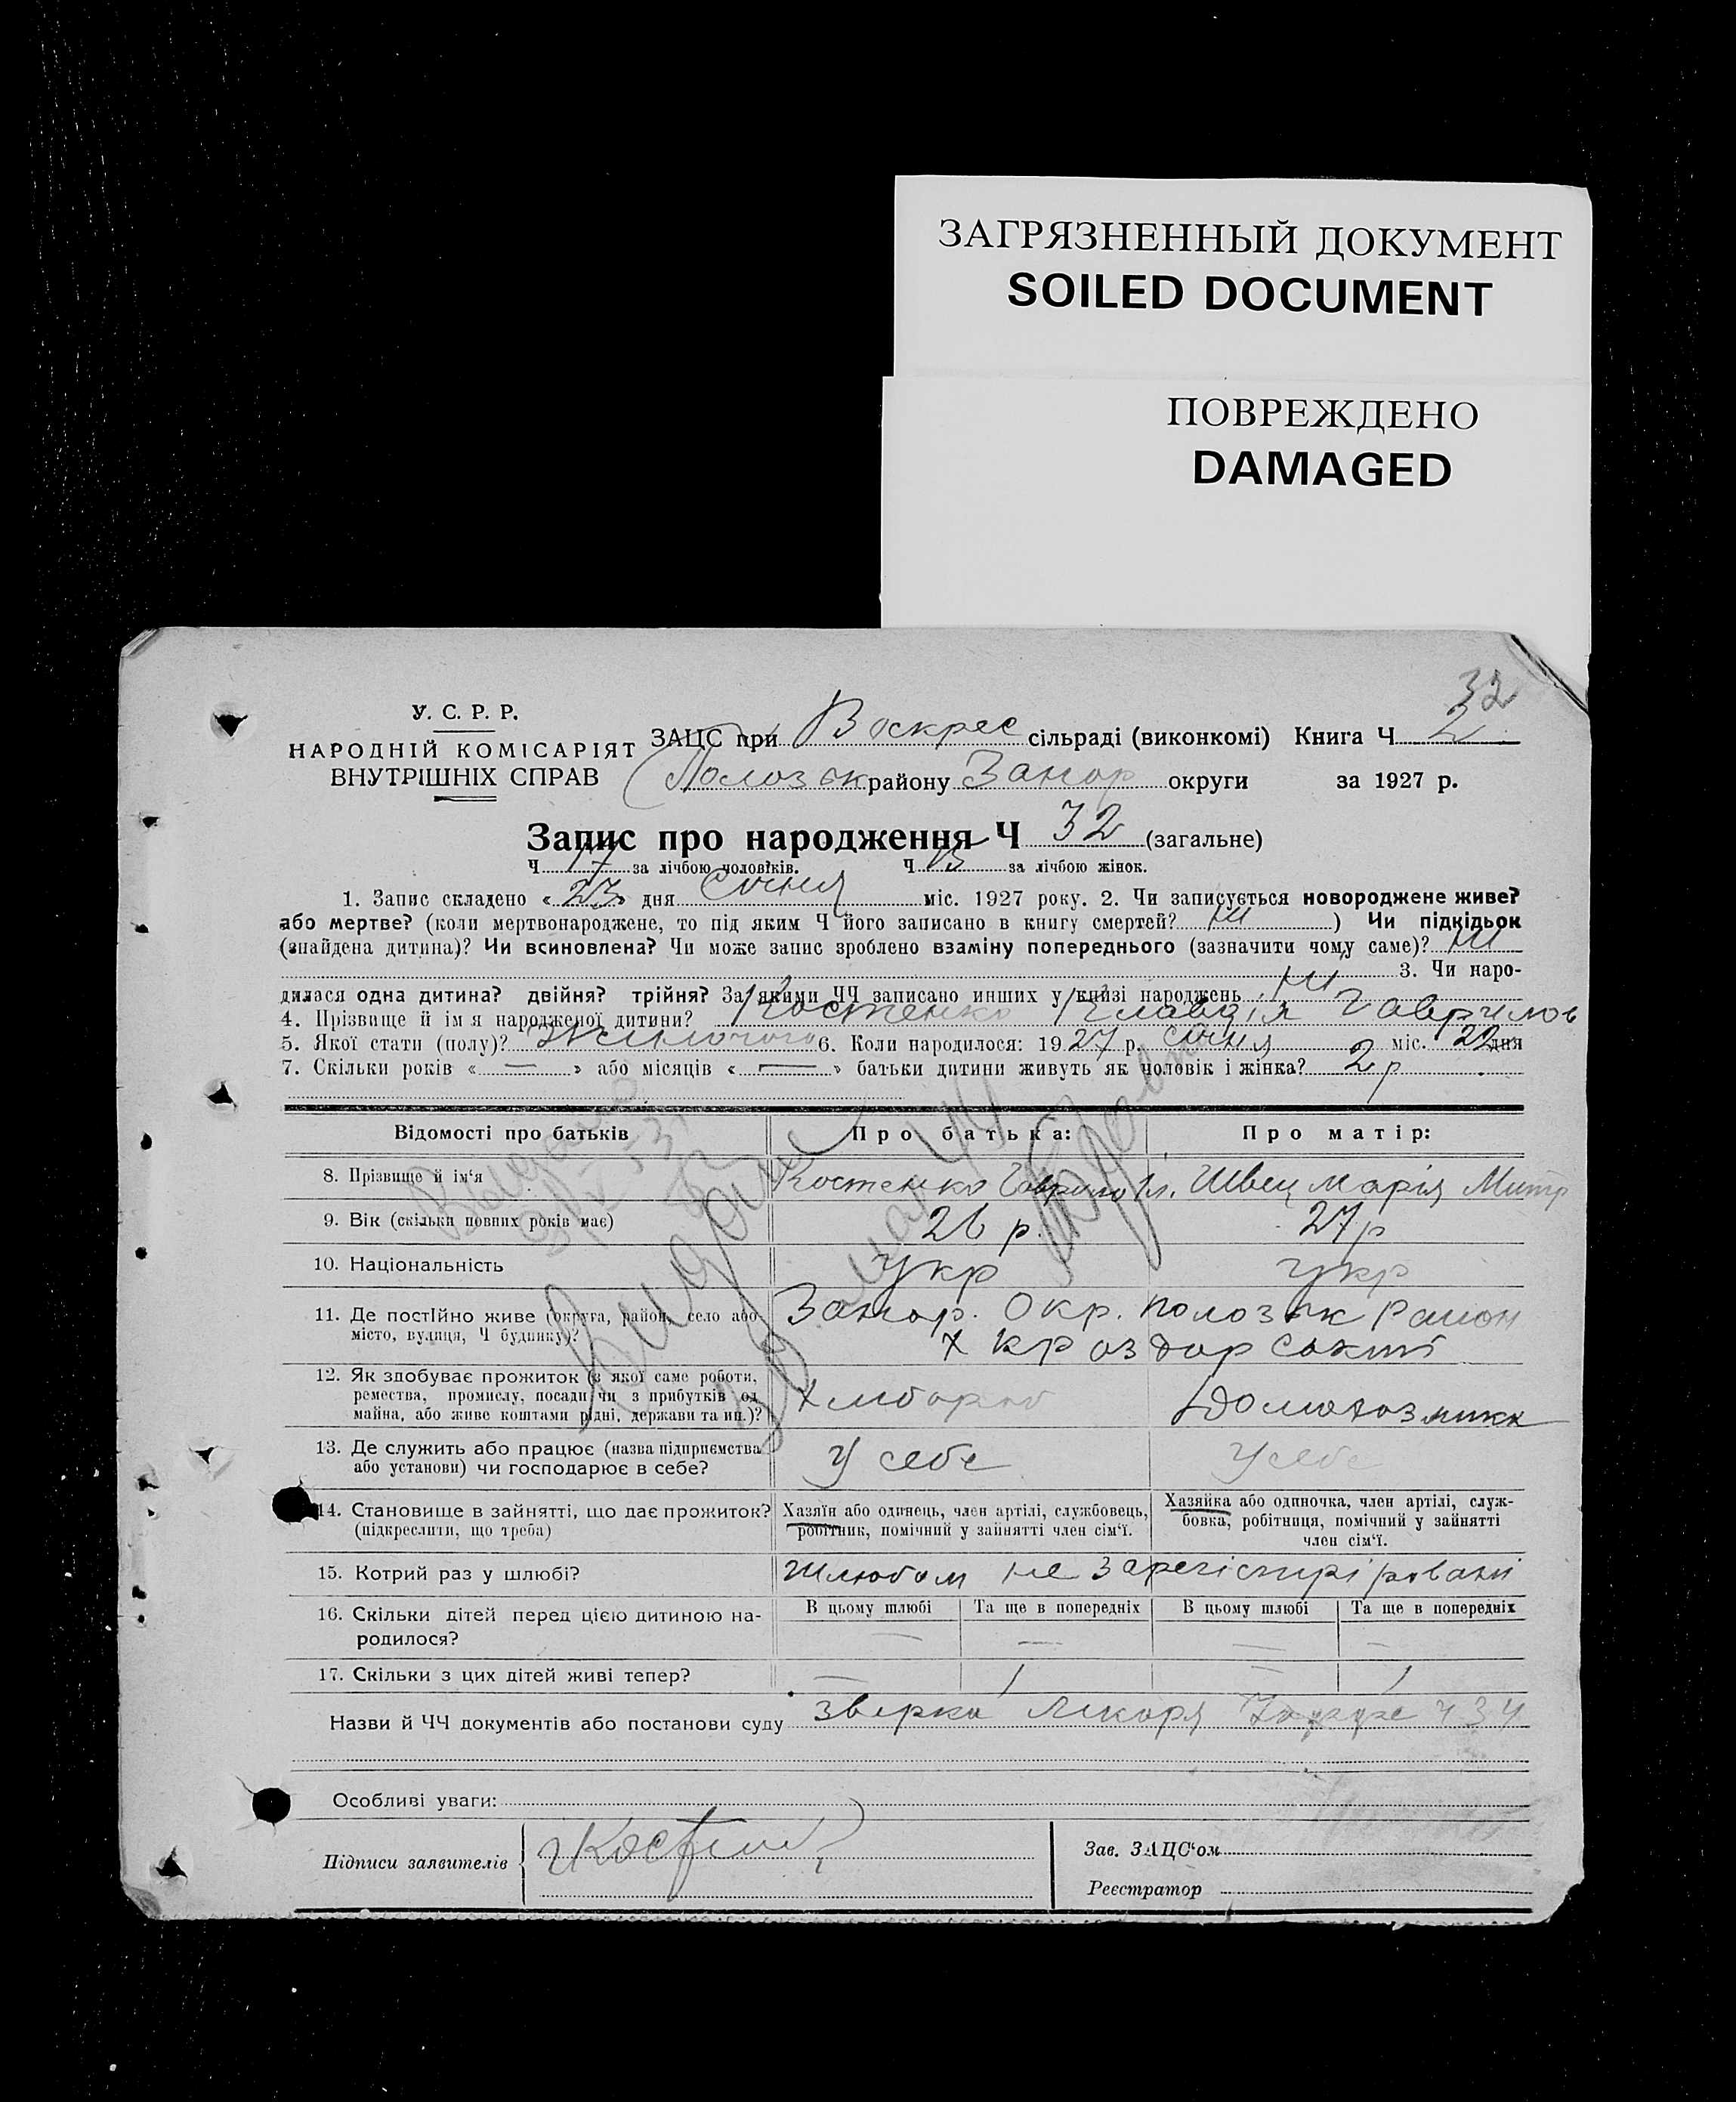 ЗАГРЯЗНЕННЫЙ ДОКУМЕНТ
SOILED DOCUMENT
ПОВРЕЖДЕНО
DAMAGED
32
У. С. Р. Р.
НАРОДНІЙ КОМІСАРІЯТ
ВНУТРІШНІХ СПРАВ
ЗАЦС при Воскрес сільраді (виконкомі) Книга Ч 2
Полозьк району Запор округи за 1927 р.
Запис про народження Ч 32 (загальне)
Ч 17 за лічбою чоловіків. Ч 15 за лічбою жінок.
1. Запис складено «23» дня Січня міс. 1927 року. 2. Чи записується новороджене живе?
або мертве? (коли мертвонароджене, то під яким Ч його записано в книгу смертей? ні ) Чи підкідьок
(знайдена дитина)? Чи всиновлена? Чи може запис зроблено взаміну попереднього (зазначити чому саме)? ні
3. Чи наро-
дилася одна дитина? двійня? трійня? За якими ЧЧ записано инших у книзі народжень ні
4. Прізвище й ім'я народженої дитини? Костенко Клавдія Гаврилов
5. Якої стати (полу)? Жіночого 6. Коли народилося: 1927 р. Січня міс. 22 дня
7. Скільки років « — » або місяців « — » батьки дитини живуть як чоловік і жінка? 2 р
Відомості про батьків Про батька: Про матір:
8. Прізвище й ім'я Костенко Гаврило Швец Марія Митр
9. Вік (скільки повних років має) 26 р. 27 р
10. Національність Укр Укр
11. Де постійно живе (округа, район, село або Запор. Окр. Полозьк Район
місто, вулиця, Ч будинку)? х
12. Як здобуває прожиток (з якої саме роботи,
ремества, промислу, посади чи з прибутків од Хлібороб Домохозяйка
майна, або живе коштами рідні, держави та ин.)?
13. Де служить або працює (назва підприємства У себе У себе
або установи) чи господарює в себе?
14. Становище в зайнятті, що дає прожиток? Хазяїн або одинець, член артілі, службовець, Хазяйка або одиночка, член артілі, служ-
(підкреслити, що треба) робітник, помічний у зайнятті член сім'ї. бовка, робітниця, помічний у зайнятті
член сім'ї.
15. Котрий раз у шлюбі? Шлюбом не зарегістріровані
16. Скільки дітей перед цією дитиною на- В цьому шлюбі Та ще в попередніх В цьому шлюбі Та ще в попередніх
родилося? — — — —
17. Скільки з цих дітей живі тепер? — 1 — 1
Назви й ЧЧ документів або постанови суду Лікаря Ч 34
Особливі уваги:
Підписи заявителів
Зав. ЗАЦС'ом
Реєстратор